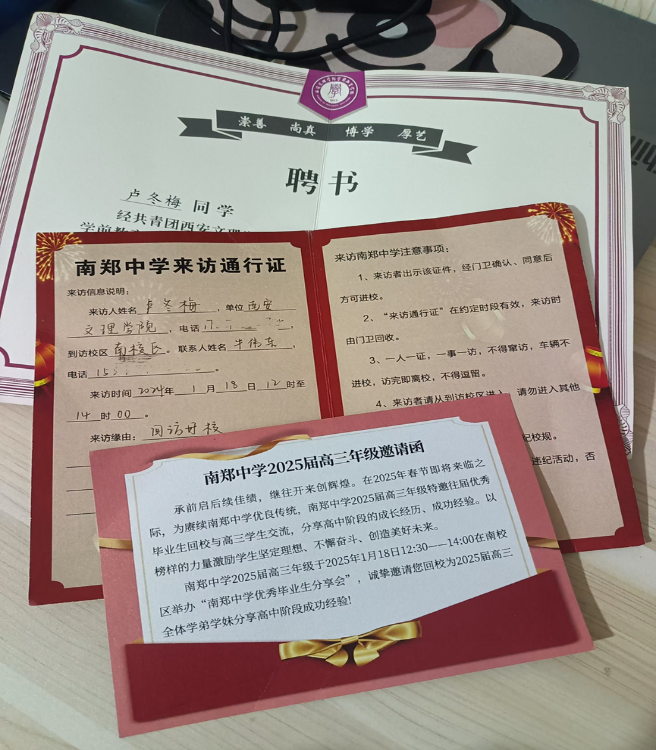 崇善 尚真 博学 厚艺
聘书
卢冬梅 同学
经共青团西安文理
南郑中学来访通行证
来访信息说明：
来访人姓名 卢冬梅 ，单位 西安
文理学院 ，电话
到访校区 南校区 联系人姓名 牛伟东 ，
电话 15
来访时间 2024年 1 月 18 日 12 时至
14 时 00 。
来访缘由： 回访母校
来访南郑中学注意事项：
1、来访者出示该证件，经门卫确认、同意后
方可进校。
2、“来访通行证”在约定时段有效，来访时
由门卫回收。
3、一人一证，一事一访，不得窜访，车辆不
进校，访完即离校，不得逗留。
4、来访者请从到访校区进入，请勿进入其他
纪校规。
违纪活动，否
南郑中学2025届高三年级邀请函
承前启后续佳绩，继往开来创辉煌。在2025年春节即将来临之
际，为赓续南郑中学优良传统，南郑中学2025届高三年级特邀往届优秀
毕业生回校与高三学生交流，分享高中阶段的成长经历、成功经验。以
榜样的力量激励学生坚定理想、不懈奋斗、创造美好未来。
南郑中学2025届高三年级于2025年1月18日12:30——14:00在南校
区举办“南郑中学优秀毕业生分享会”，诚挚邀请您回校为2025届高三
全体学弟学妹分享高中阶段成功经验!